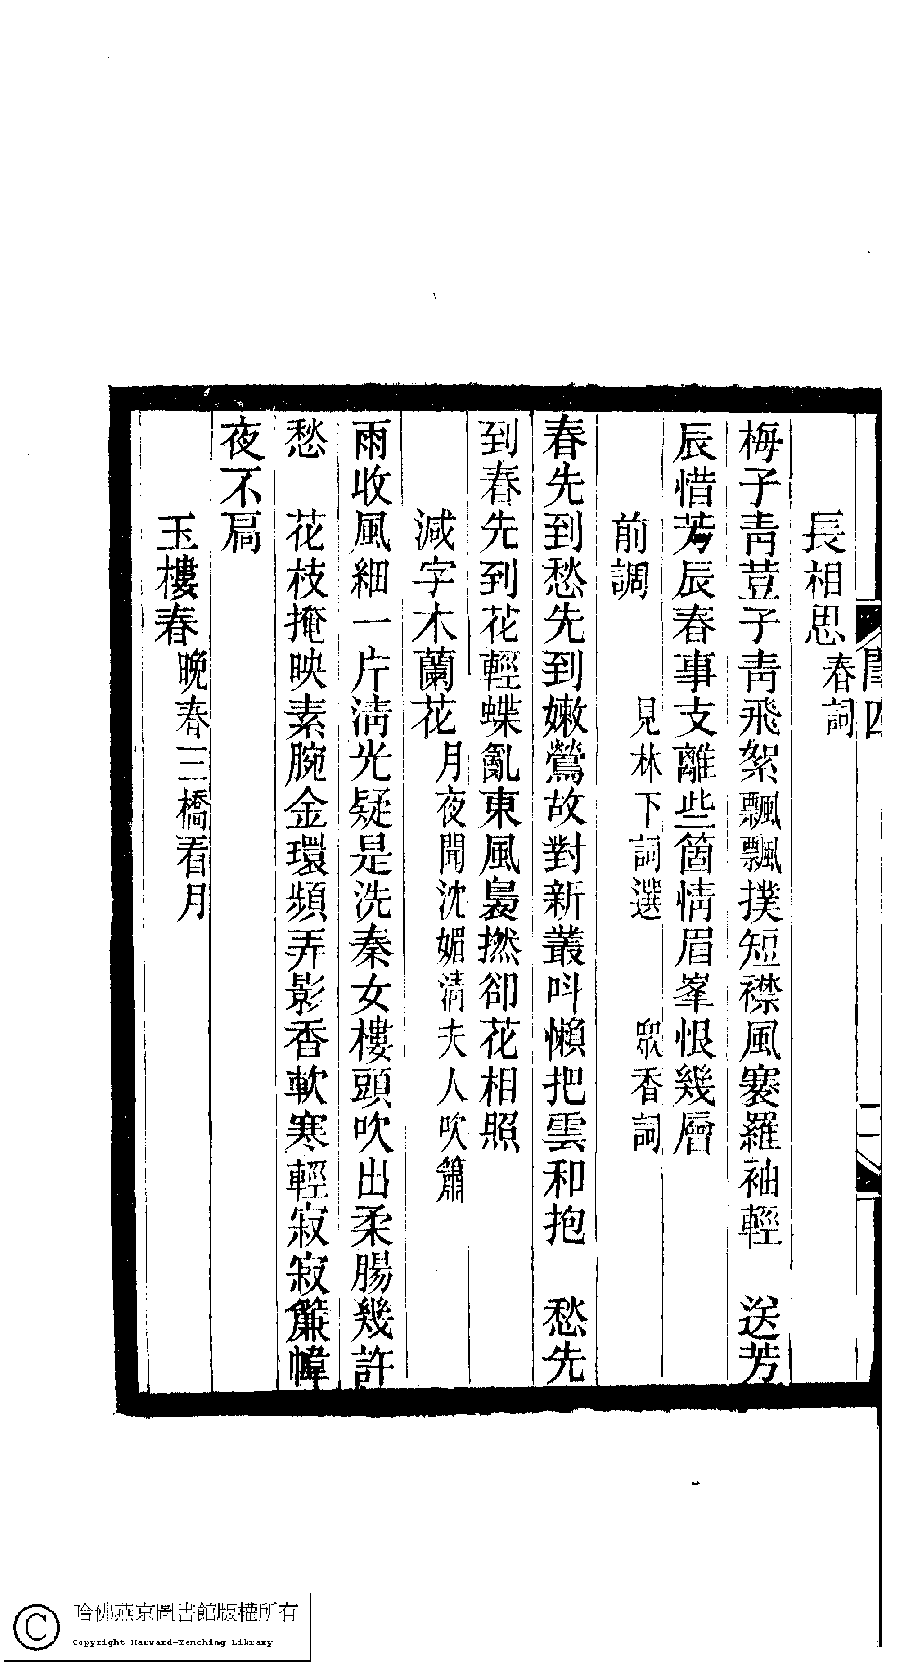 長相思春詞
梅子靑荳子靑飛絮飄飄撲短襟風褰羅袖輕　送芳
辰惜芳辰春事支離些箇情眉峯恨幾層
前調　見林下詞選　衆香詞
春先到愁先到嫩鶯故對新叢呌懶把雲和抱　愁先
到春先到花輕蝶亂東風裊撚卻花相照
減字木蘭花月夜聞沈媚淸夫人吹簫
雨收風細一片淸光疑是洗秦女樓頭吹出柔腸幾許
愁　花枝掩映素腕金環頻弄影香軟寒輕寂寂簾幃
夜不扃
玉樓春晚春三橋看月
哈佛燕京圖書館版權所有
Copyright Harvard-Yenching Library